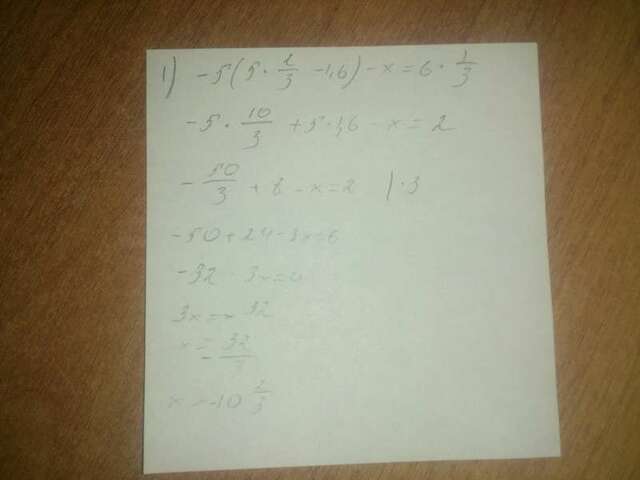 1) -5(5·2/3 -1,6) -x = 6·1/3
-5·10/3 +5·1,6 -x = 2
-50/3 + 8 -x = 2 |·3
-50+24-3x=6
-32 - 3x=0
3x = -32
x = -32/3
x = -10 2/3